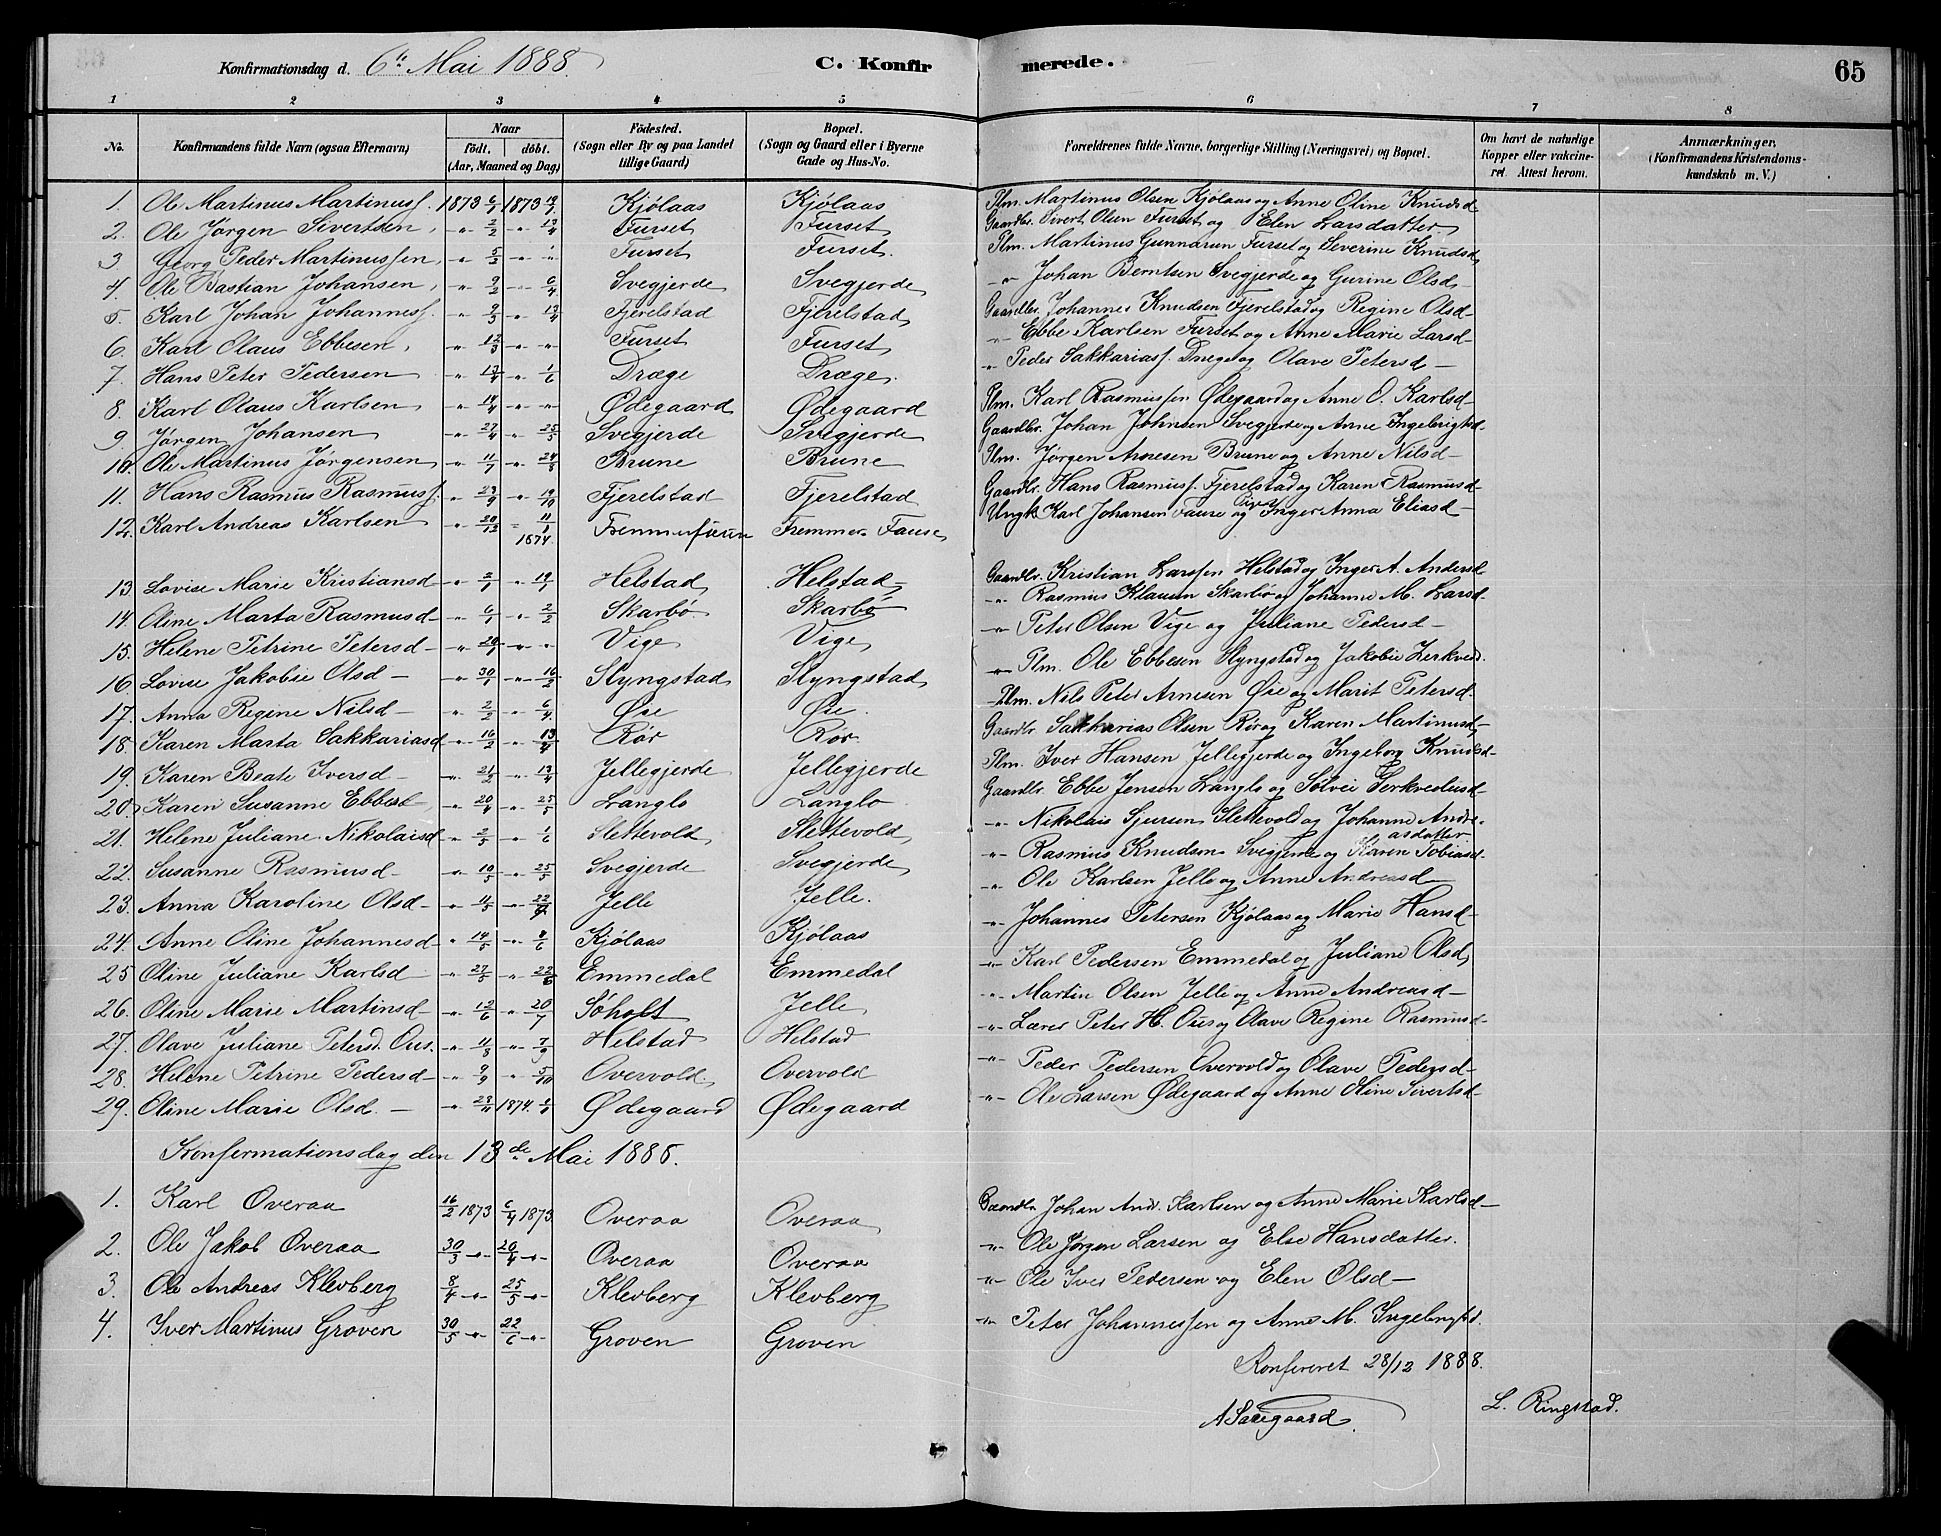 Konfirmationsdag d. 6te Mai 1888. C. Konfirmerede. 65
1 2 3 4 5 6 7 8
No. Konfirmandens fulde Navn (ogsaa Efternavn) Naar födt. döbt. (Aar, Maaned og Dag) Födested. (Sogn eller By og paa Landet tillige Gaard) Bopæl. (Sogn og Gaard eller i Byerne Gade og Hus-No. Forældrenes fulde Navne, borgerlige Stilling (Næringsvei) og Bopæl. Om havt de naturlige Kopper eller vakcineret. Attest herom. Anmærkninger. (Konfirmandens Kristendomskundskab m. V.)
1. Ole Martinus Martinuss. 1873 6/1 1873 Kjölaas Kjölaas Plm. Martinus Olsen Kjölaas og Anne Oline Knudsd
2. Ole Jörgen Sivertsen, -„- 2/2 -„- 13/4 Furset Furset Gaardbr. Sivert Olsen Furset og Elen Larsdatter
3 Georg Peder Martinussen, -„- 5/2 -„- -„- Furset Furset. Plm. Martinus Gunnarsen Furset og Severine Knudsd
4. Ole Bastian Johansen, -„- 9/2 -„- 6/4 Svegjerde Svegjerde -„- Johan Berntsen Svegjerde og Gurine Olsd
5. Karl Johan Johanness. -„- 9/3 -„- 13/4 Fjerelstad Fjerelstad Gaardbr. Johannes Knudsen Fjerelstad og Regine Olsd-
6. Karl Olaus Ebbesen, -„- 12/3 -„- -„- Furset Furset -„- Ebbe Karlsen Furset og Anne Marie Larsd-
7. Hans Peter Pedersen -„- 13/4 -„- 1/6 Dræge Dræge. -„- Peder Sakkariass. Dræge og Olave Petersd-
8. Karl Olaus Karlsen -„- 14/4 -„- -„- Ödegaard Ödegaard Plm. Karl Rasmussen Ödegaard og Anne O. Karlsd-
9 Jörgen Johansen -„- 27/4 -„- 25/5 Svegjerde Svegjerde Gaardbr. Johan Johnsen Svegjerde og Anne Ingebrigtsd-
10. Ole Martinus Jörgensen -„- 11/7 -„- 24/8 Brune Brune Plm. Jörgen Arnesen Brune og Anne Nilsd-
11. Hans Rasmus Rasmuss. -„- 23/9 -„- 19/10 Fjerelstad Fjerelstad Gaardbr. Hans Rasmuss. Fjerelstad og Karen Rasmusd-
12. Karl Andreas Karlsen -„- 20/12 -„- 11/1 1874. Fremmerfausen Fremmer Fause Ungk. Karl Johansen Fause og Pige Inger Anna Eliasd-
13. Lovise Marie Kristiansd -„- 2/1 -„- 19/1 Helstad Helstad Gaardbr. Kristian Larssen Helstad og Inger A. Andersd
14. Oline Marta Rasmusd- -„- 6/1 -„- 2/2 Skarbö Skarbö -„- Rasmus Klausen Skarbö og Johanne M. Larsd-
15. Helene Petrine Petersd- -„- 20/1 -„- -„- Vige Vige -„- Peter Olsen Vige og Juliane Pedersd-
16 Lovise Jakobie Olsd- -„- 30/1 -„- 16/2 Klyngstad Klyngstad -„- Plm. Ole Ebbesen Klyngstad og Jakobie
17. Anna Regine Nilsd- -„- 2/2 -„- 6/4 Öie Öie. Plm. Nils Peter Arnesen Öie og Marit Petersd.
18 Karen Marta Sakkariasd -„- 16/2 -„- 13/4 Rör Rör. Gaardbr. Sakkarias Olsen Rör og Karen Martinusd-
19. Karen Beate Iversd- -„- 21/2 -„- 13/4 Jellegjerde Jellegjerde Plm. Iver Hansen Jellegjerde og Ingeborg Knudsd-
20. Karen Susanne Ebbesd -„- 20/4 -„- 25/5 Langlo Langlo Gaardbr. Ebbe Jensen Langlo og Sölvei
21. Helene Juliane Nikolaisd -„- 2/5 -„- 1/6 Slettevold Slettevold -„- Nikolais Sjursen Slettevold og Johanne Andreasdatter
22. Susanne Rasmusd- -„- 10/5 -„- 25/5 Svegjerde Svegjerde -„- Rasmus Knudsen Svegjerde og Karen Tobiasd-
23. Anna Karoline Olsd- -„- 11/5 -„- Jelle Jelle. -„- Ole Karlsen Jelle og Anne Andreasd
24. Anne Oline Johannesd- -„- 14/5 -„- 8/6 Kjölaas Kjölaas -„- Johannes Petersen Kjölaas og Marie Hansd-
25 Oline Juliane Karlsd- -„- 27/5 -„- 22/6 Emmedal Emmedal -„- Karl Pedersen Emmedal og Juliane Olsd
26. Oline Marie Martinsd- -„- 12/6 -„- 20/7 Söholt Jelle -„- Martin Olsen Jelle og Anne Andreasd-
27. Olave Juliane Petersd. Ous. -„- 11/8 -„- 7/9 Helstad Helstad -„- Lærer Peter H. Ous og Olave Regine Rasmusd-
28. Helene Petrine Pedersd- -„- 9/9 -„- 5/10 Overvold Overvold -„- Peder Pedersen Overvold og Olave Pedersd-
29. Oline Marie Olsd. - -„- 23/11 1874. 1/1 Ödegaard Ödegaard -„- Ole Larsen Ödegaard og Anne Oline Sivertsd-
Konfermationsdag den 13de Mai 1888.
1. Karl Overaa 16/2 1873 6/4 1873 Overaa Overaa Gaardbr. Johan And. Karlsen og Anne Marie Karlsd-
2. Ole Jakob Overaa 30/3 -„- 20/4 -„- Overaa Overaa -„- Ole Jörgen Larsen og Else Hansdatter.
3. Ole Andreas Klevberg 8/4 -„- 25/5 -„- Klevberg Klevberg -„- Ole Iver Pedersen og Elen Olsd-
4. Iver Martinus Groven 30/5 -„- 22/6 -„- Groven Groven -„- Peter Johannessen og Anne M. Ingebrigtsd.
Konfereret 28/12 1888.
A Saxegaard. L. Ringstad.